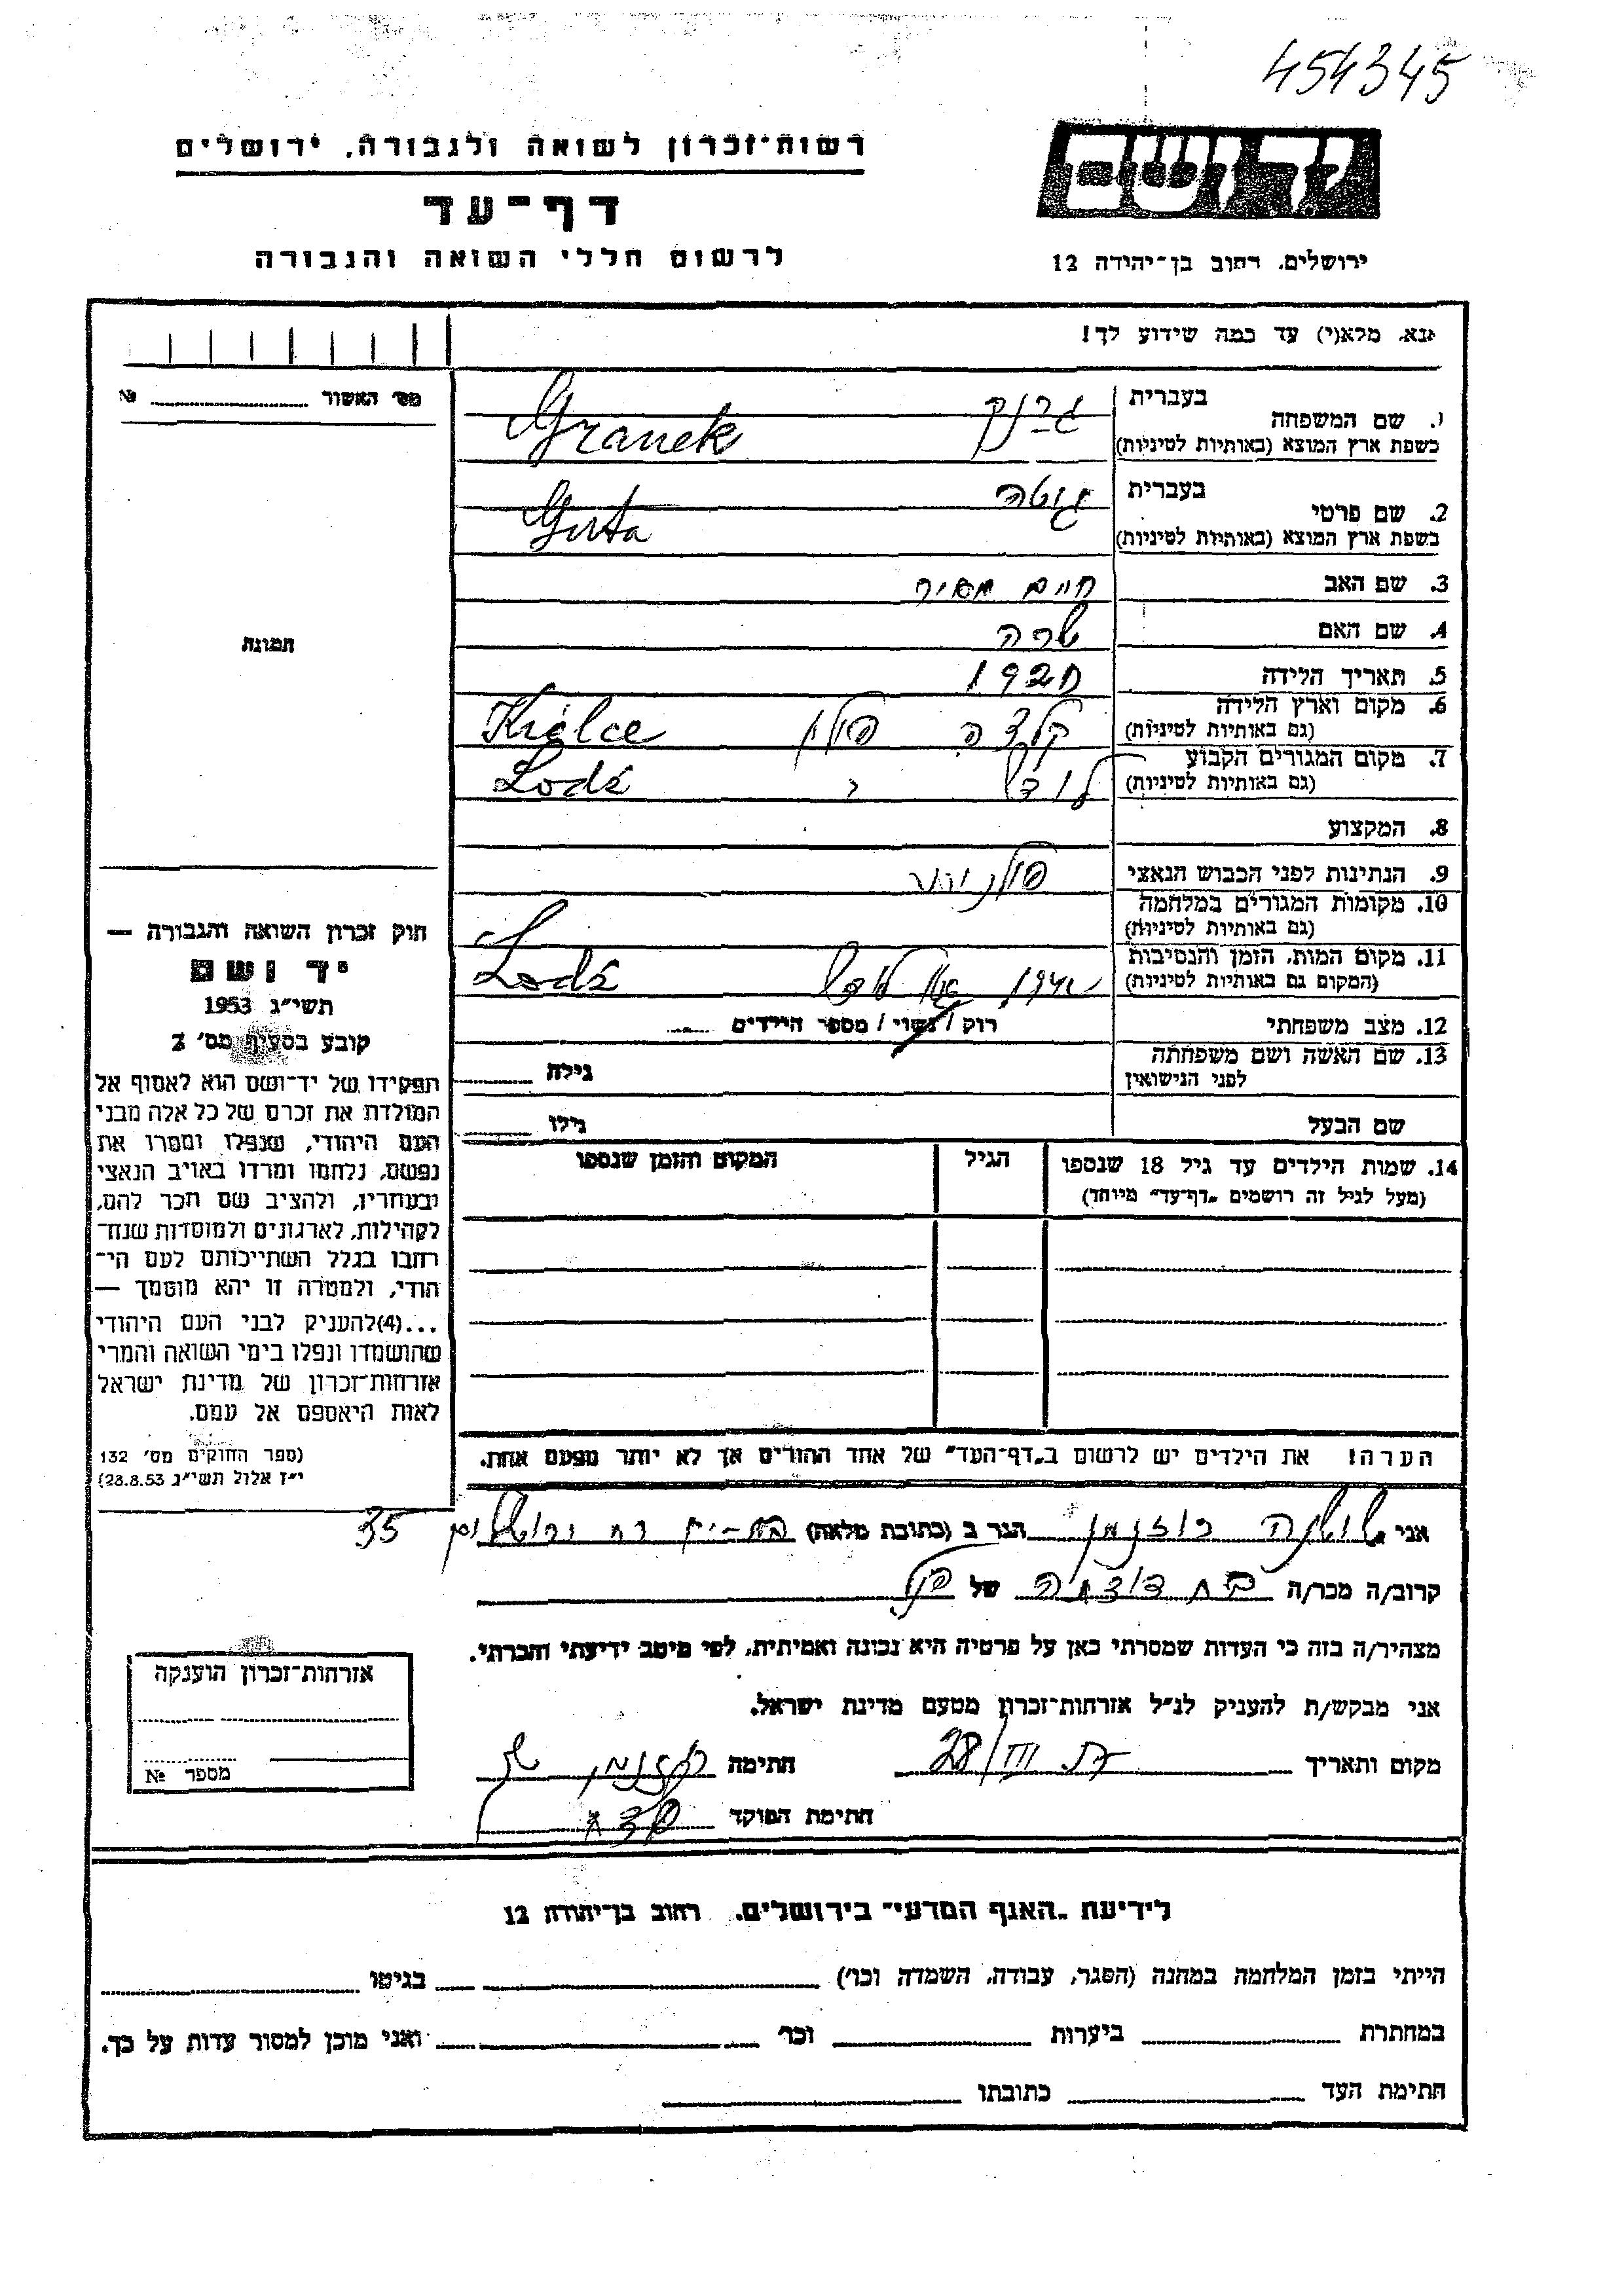 454345
רשות־זכרון לשואה ולגבורה, ירושלים
דף־עד
לרשום חללי השואה והגבורה
יד ושם
ירושלים, רחוב בן־יהודה 12
נא, מלא(י) עד כמה שידוע לך!
מס׳ האשור № ........
1. שם המשפחה בעברית גרנק
בשפת ארץ המוצא (באותיות לטיניות) Granek
2. שם פרטי בעברית גוטה
בשפת ארץ המוצא (באותיות לטיניות) Guta
3. שם האב חיים מאיר
4. שם האם שרה
5. תאריך הלידה
6. מקום וארץ הלידה (גם באותיות לטיניות) קלצה פולין Kielce
7. מקום המגורים הקבוע (גם באותיות לטיניות) לודז' Lodź
8. המקצוע
9. הנתינות לפני הכבוש הנאצי פולנית
10. מקומות המגורים במלחמה (גם באותיות לטיניות)
11. מקום המות, הזמן והנסיבות (המקום גם באותיות לטיניות) Lodź
12. מצב משפחתי רווק / נשוי / מספר הילדים ......
13. שם האשה ושם משפחתה לפני הנישואין גילה ........
שם הבעל גילו ........
14. שמות הילדים עד גיל 18 שנספו (מעל לגיל זה רושמים „דף־עד" מיוחד)
הגיל
המקום והזמן שנספו
הערה! את הילדים יש לרשום ב„דף־העד" של אחד ההורים אך לא יותר מפעם אחת.
תמונה
חוק זכרון השואה והגבורה —
יד ושם
תשי״ג 1953
קובע בסעיף מס׳ 2
תפקידו של יד־ושם הוא לאסוף אל
המולדת את זכרם של כל אלה מבני
העם היהודי, שנפלו ומסרו את
נפשם, נלחמו ומרדו באויב הנאצי
ובעוזריו, ולהציב שם וזכר להם,
לקהילות, לארגונים ולמוסדות שנח־
רבו בגלל השתייכותם לעם הי־
הודי, ולמטרה זו יהא מוסמך —
...(4) להעניק לבני העם היהודי
שהושמדו ונפלו בימי השואה והמרי
אזרחות־זכרון של מדינת ישראל
לאות היאספם אל עמם.
(ספר החוקים מס׳ 132
י״ז אלול תשי״ג 28.8.53)
אני שושנה רוזנמן הגר ב (כתובת מלאה) בת-ים רח 35
קרוב/ה מכר/ה בת דודה של הנ"ל
מצהיר/ה בזה כי העדות שמסרתי כאן על פרטיה היא נכונה ואמיתית, לפי מיטב ידיעתי והכרתי.
אני מבקש/ת להעניק לנ״ל אזרחות־זכרון מטעם מדינת ישראל.
מקום ותאריך 28/III חתימה רוזנמן ש
חתימת הפוקד
אזרחות־זכרון הוענקה
מספר №
לידיעת „האגף המדעי" בירושלים, רחוב בן־יהודה 12
הייתי בזמן המלחמה במחנה (הסגר, עבודה, השמדה וכו׳) ........ בגיטו ........
במחתרת ........ ביערות ........ וכו׳ ........ ואני מוכן למסור עדות על כך.
חתימת העד ........ כתובתו ........